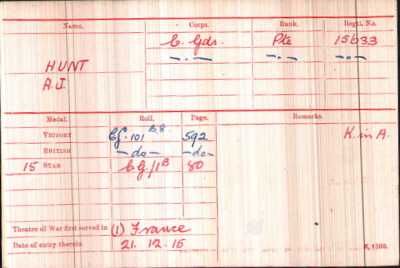 Name. Corps. Rank. Regtl. No.
C. Gds. Pte 15633
— . — — . — — . —
HUNT
A.J.
Medal. Roll. Page. Remarks.
VICTORY CG. 101 B.8. 592 K. in A.
BRITISH — do — — do —
15 STAR C.G./1B 80
Theatre of War first served in (1) France
Date of entry therein 21. 12. 15
K. 1380.